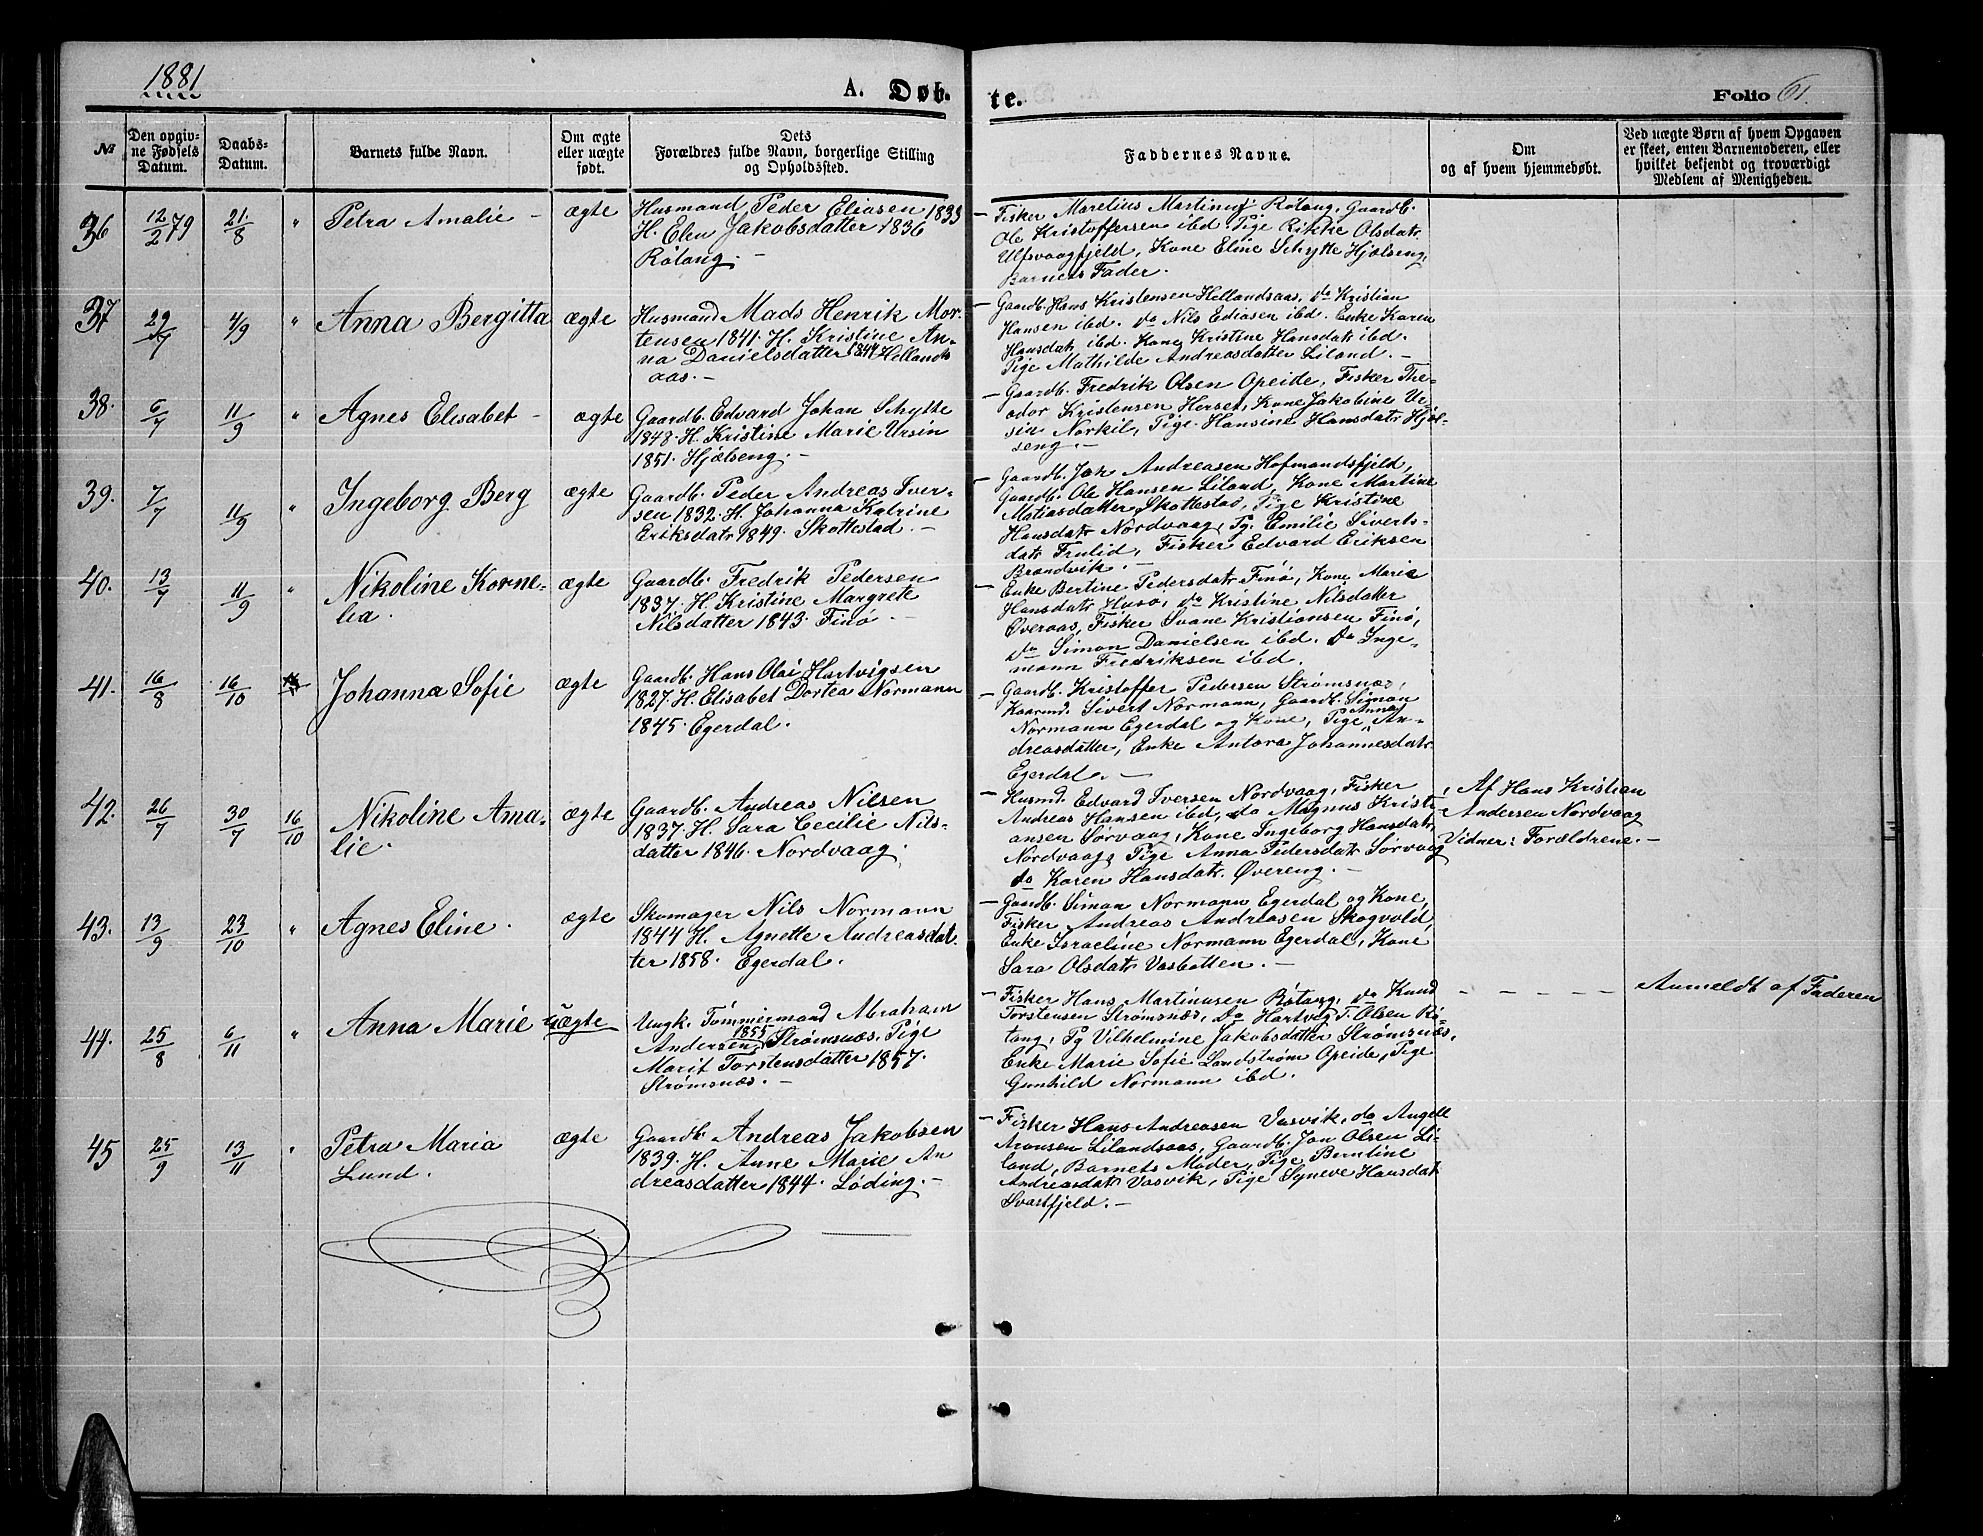 1881
A. Døb-
te.
Folio 61.
№
Den opgiv-
ne Fødsels
Datum.
Daabs-
Datum.
Barnets fulde Navn.
Om ægte
eller uægte
født.
Dets
Forældres fulde Navn, borgerlige Stilling
og Opholdssted.
Faddernes Navne.
Om
og af hvem hjemmedøbt.
Ved uægte Børn af hvem Opgaven
er skeet, enten Barnemoderen, eller
hvilket bekjendt og troværdigt
Medlem af Menigheden.
36
12/2 79
21/8
"
Petra Amalie -
ægte
Husmand Peder Eliasen 1833
H. Elen Jakobsdatter 1836
Rötang. -
- Fisker Marelius Martinus. Rotang, Gaardb.
Ole Kristoffersen ibd. Pige Rikke Olsdatr
Ulfsvaagfjeld, Kone Eline Schytte Hjolseng,
Barnets Fader.
37
29/7
4/9
"
Anna Bergitta
ægte
Husmand Mads Henrik Mor-
tensen 1841. H. Kristine An-
na Danielsdatter 1844 Hellands
aas. -
- Gaardb. Hans Kristensen Hellandsaas, do Kristian
Hansen ibd. do Nils Ediasen ibd. Enke Karen
Hansdatr ibd. Kone Kristine Hansdatr ibd.
Pige Mathilde Andreasdatter Liland. -
38.
6/7
11/9
"
Agnes Elisabet -
ægte
Gaardb. Edvard Johan Schytte
1848. H. Kristine Marie Ursin
1851. Hjolseng. -
- Gaardb. Fredrik Olsen Opeide, Fisker The-
odor Kristensen Herset, Kone Jakobine Ur-
sin Norkil, Pige Hansine Hansdatr Hjol-
seng. -
39.
7/7
11/9
"
Ingeborg Berg
ægte
Gaardb. Peder Andreas Iver-
sen 1832. H. Johanna Katrine
Eriksdatr 1849. Skottestad. -
- Gaardb. Jak Andreasen Hofmandsfjeld,
Gaardb. Ole Hansen Liland, Kone Martine
Matiasdatter Skottestad, Pige Kristine
Hansdatr Nordvaag, Pg. Emilie Siverts-
datr Frulid, Fisker Edvard Eriksen
Brandvik. -
40.
13/7
11/9
"
Nikoline Korne-
lia.
ægte
Gaardb. Fredrik Pedersen
1837. H. Kristine Margrete
Nilsdatter 1843. Finö. -
- Enke Bertine Pedersdatr Finö, Kone Marie
Hansdatr Husö, do Kristine Nilsdatter
Øveraas, Fisker Svane Kristiansen Finö,
do Simon Danielsen ibd. do Inge-
mann Fredriksen ibd.
41.
16/8
16/10
Johanna Sofie
ægte
Gaardb. Hans Olai Hartvigsen
1827. H. Elisabet Dortea Normann
1845. Egerdal.
- Gaardb. Kristoffer Pedersen Strømsnæs,
Kaarmd. Sivert Normann, Gaardb. Simon
Normann Egerdal og Kone, Pige Anna An-
dreasdatter, Enke Antora Johannesdatr
Egerdal. -
42.
26/7
30/7
16/10
Nikoline Ama-
lie.
ægte
Gaardb. Andreas Nilsen
1837. H. Sara Cecilie Nils-
datter 1846. Nordvaag.
- Husmd. Edvard Iversen Nordvaag, Fisker
Andreas Hansen ibd, do Magnus Kristi-
ansen Sørvaag, Kone Ingeborg Hansdatr
Nordvaag, Pige Anna Pedersdatr Sorvaag
do Karen Hansdatr. Øvereng. -
Af Hans Kristian
Andersen Nordvaag
Vidner: Forældrene. -
43.
13/9
23/10
"
Agnes Eline.
ægte
Skomager Nils Normann
1844 H. Agnette Andreasdat-
ter 1858. Egerdal.
- Gaardb. Simon Normann Egerdal og Kone,
Fisker Andreas Andreasen Skogvold,
Enke Israeline Normann Egerdal, Kone
Sara Olsdatr Vasbotten. -
44.
25/8
6/11
"
Anna Marie
uægte
Ungk. Tömmermand Abraham
Andersen 1855 Strømsnæs. Pige
Marit Torstensdatter 1857.
Strømsnæs. -
- Fisker Hans Martinusen Rötang, do Knud
Torstensen Strømsnæs, do Hartvig T. Olsen Rö-
tang, Pg Vilhelmine Jakobsdatter Strømsnæs,
Enke Marie Sofie Landstrøm Opeide, Pige
Gunhild Normann ibd.
- - - - -
Anmeldt af Faderen
45
25/9
13/11
"
Petra Maria
Lund.
ægte
Gaardb. Andreas Jakobsen
1839. H. Anne Marie An
dreasdatter 1844. Löding. -
- Fisker Hans Andreasen Vasvik, do Angell
Aronsen Lilandsaas, Gaardb. Jon Olsen Li-
land, Barnets Moder, Pige Berntine
Andreasdatr Vasvik, Pige Syneve Hansdatr
Svartfjeld. -